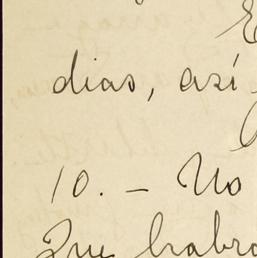 dias, así
10. — No
Que habra